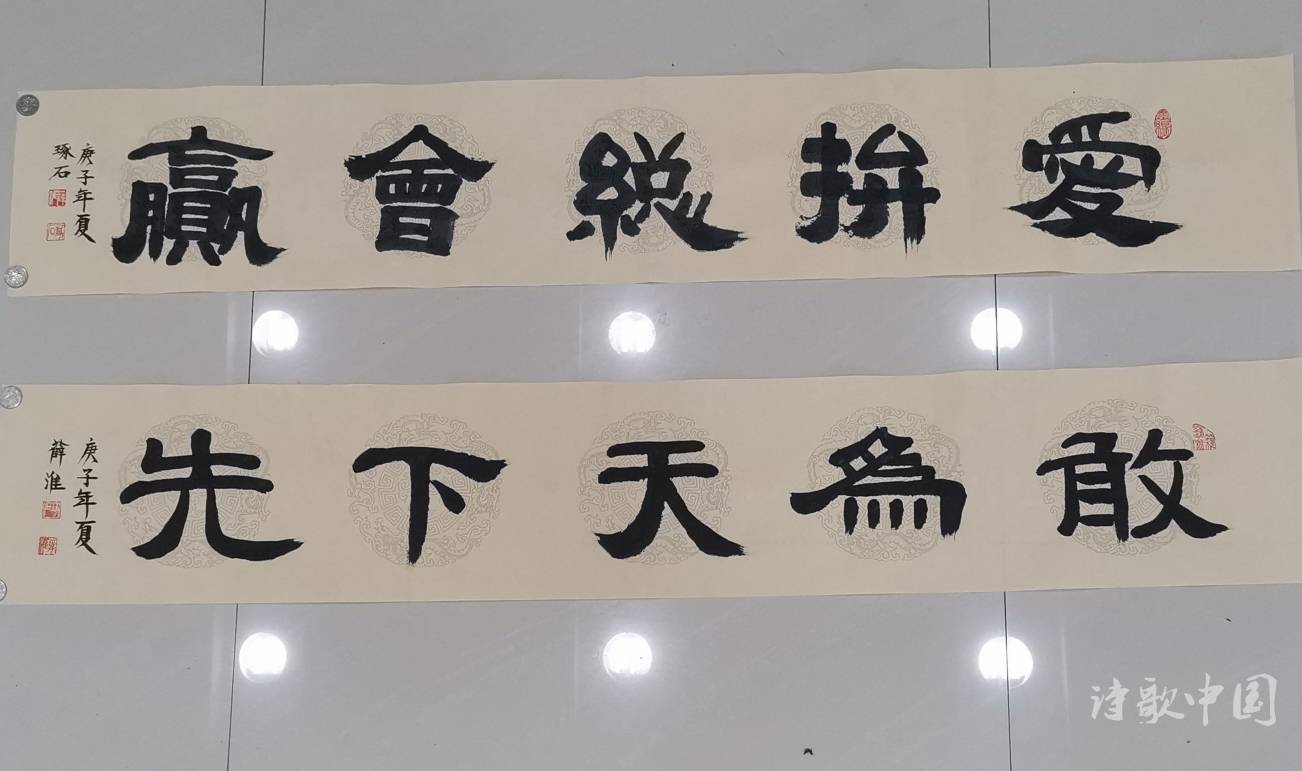 愛拚総會贏
庚子年夏
琢石
敢為天下先
庚子年夏
薛淮
诗歌中国